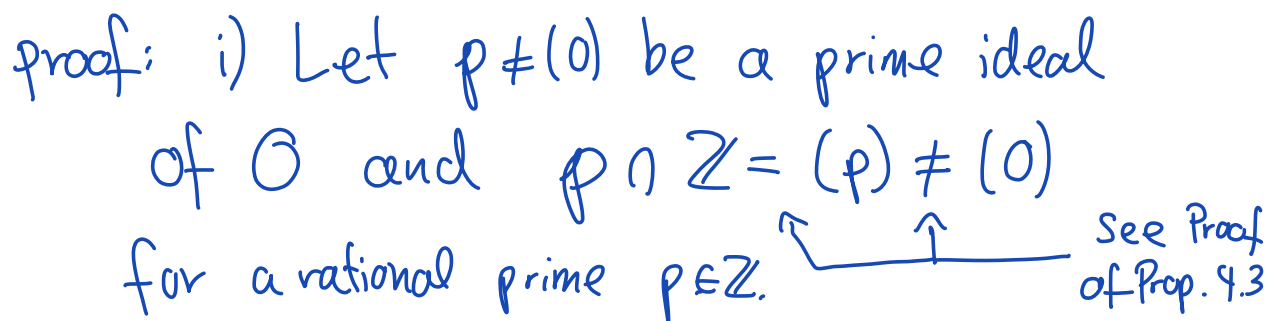 proof: i) Let p ≠ (0) be a prime ideal
of O and p ∩ ℤ = (p) ≠ (0)
for a rational prime p∈ℤ.
see Proof
of Prop. 4.3